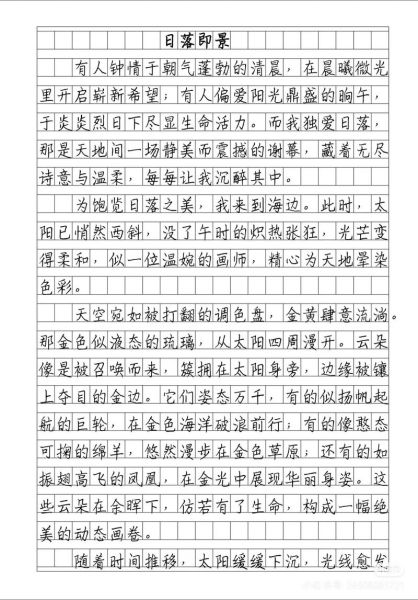 日落即景
有人钟情于朝气蓬勃的清晨，在晨曦微光
里开启崭新希望；有人偏爱阳光鼎盛的晌午，
于炎炎烈日下尽显生命活力。而我独爱日落，
那是天地间一场静美而震撼的谢幕，藏着无尽
诗意与温柔，每每让我沉醉其中。
为饱览日落之美，我来到海边。此时，太
阳已悄然西斜，没了午时的炽热张狂，光芒变
得柔和，似一位温婉的画师，精心为天地晕染
色彩。
天空宛如被打翻的调色盘，金黄肆意流淌。
那金色似液态的琉璃，从太阳四周漫开。云朵
像是被召唤而来，簇拥在太阳身旁，边缘被镶
上夺目的金边。它们姿态万千，有的似扬帆起
航的巨轮，在金色海洋破浪前行；有的像憨态
可掬的绵羊，悠然漫步在金色草原；还有的如
振翅高飞的凤凰，在金光中展现华丽身姿。这
些云朵在余晖下，仿若有了生命，构成一幅绝
美的动态画卷。
随着时间推移，太阳缓缓下沉，光线愈发